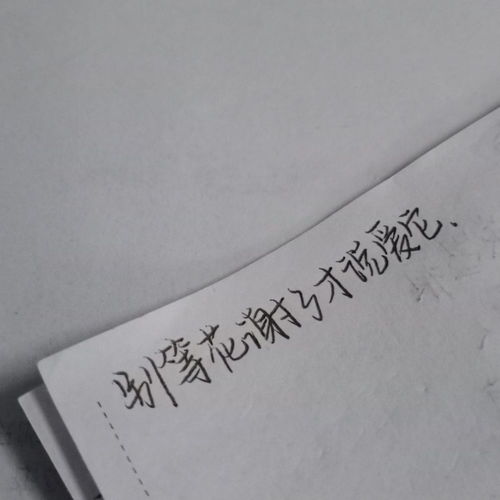 别等花谢了才说爱它、